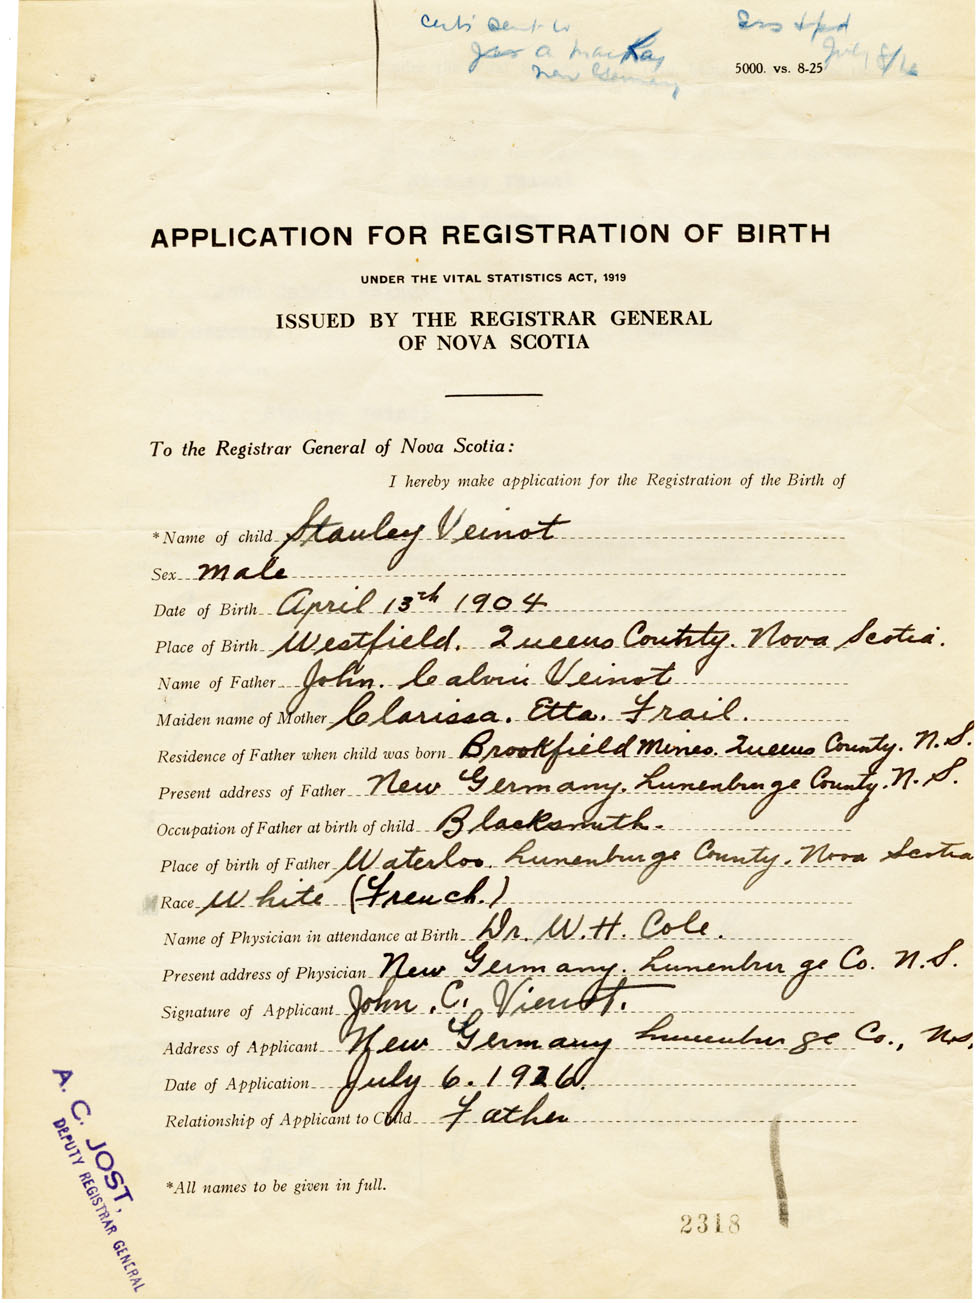 Certs sent to
Jas A MacKay
New Germany
July 8/26
5000. vs. 8-25
APPLICATION FOR REGISTRATION OF BIRTH
UNDER THE VITAL STATISTICS ACT, 1919
ISSUED BY THE REGISTRAR GENERAL
OF NOVA SCOTIA
To the Registrar General of Nova Scotia:
I hereby make application for the Registration of the Birth of
*Name of child Stanley Veinot
Sex male
Date of Birth April 13th 1904
Place of Birth Westfield. Queens County. Nova Scotia.
Name of Father John. Calvin Veinot
Maiden name of Mother Clarissa. Etta. Frail.
Residence of Father when child was born Brookfield Mines. Queens County. N.S.
Present address of Father New Germany. Lunenburge County. N.S.
Occupation of Father at birth of child Blacksmith.
Place of birth of Father Waterloo. Lunenburge County. Nova Scotia
Race White (French.)
Name of Physician in attendance at Birth Dr. W. H. Cole.
Present address of Physician New Germany. Lunenburge Co. N.S.
Signature of Applicant John. C. Vienot.
Address of Applicant New Germany Lunenburge Co., N.S.
Date of Application July 6. 1926.
Relationship of Applicant to Child Father
*All names to be given in full.
A. C. JOST,
DEPUTY REGISTRAR GENERAL
2318